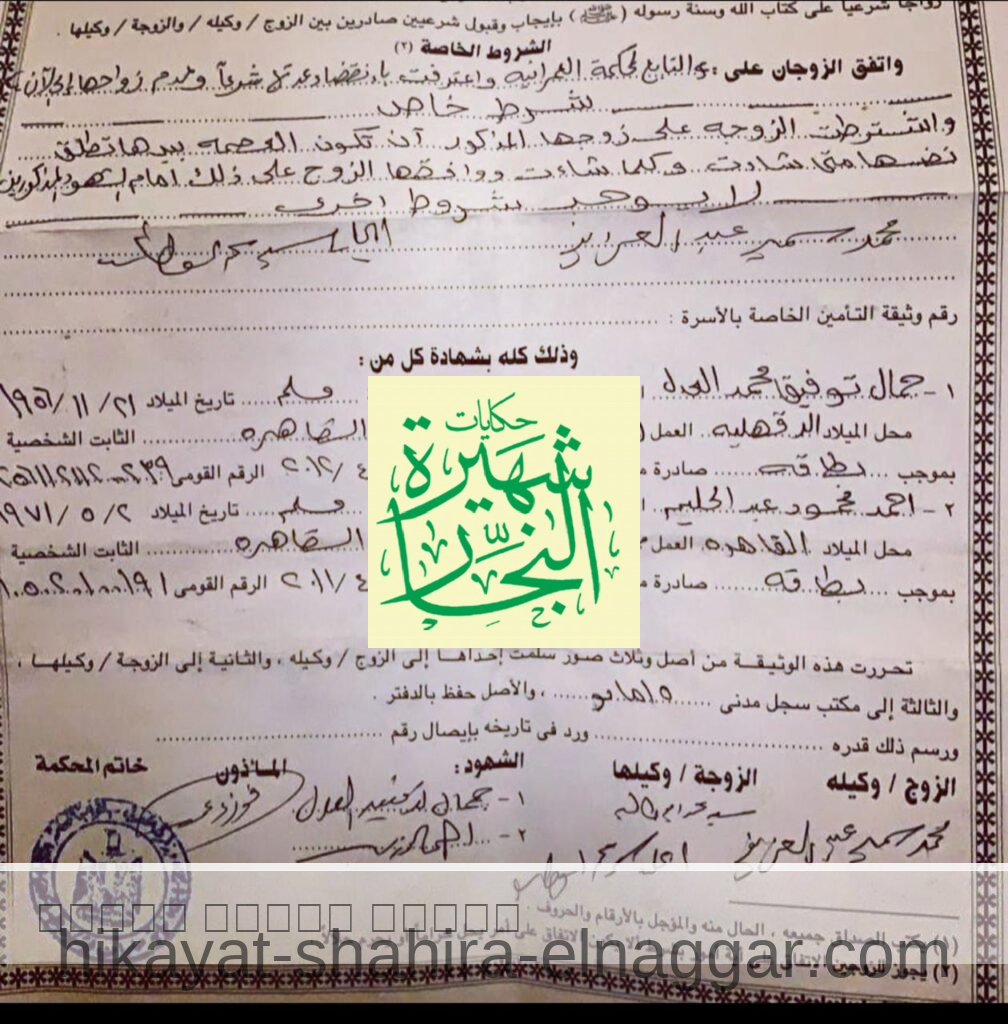 زواجا شرعيا على كتاب الله وسنة رسوله (ﷺ) بإيجاب وقبول شرعيين صادرين بين الزوج / وكيله / والزوجة / وكيلها .
الشروط الخاصة (٢)
واتفق الزوجان على : والتابع لمحكمة العمرانية واعترفت بانقضاء عدتها شرعاً وعدم زواجها إلى الآن
شرط خاص
واشترطت الزوجه على زوجها المذكور أن تكون العصمه بيدها تطلق
نفسها متى شاءت وكلما شاءت ووافقها الزوج على ذلك امام الشهود المذكورين
لا يوجد شروط اخرى
محمد سمير عبد العزيز
رقم وثيقة التأمين الخاصة بالأسرة :
وذلك كله بشهادة كل من :
١ - جمال توفيق محمد العدل مسلم تاريخ الميلاد ٢١ / ١١ / ١٩٥٦
محل الميلاد الدقهليه العمل القاهره الثابت الشخصية
بموجب بطاقه صادرة ٢٠١٢/٤ الرقم القومى
٢ - احمد محمود عبد الحليم مسلم تاريخ الميلاد ٢ / ٥ / ١٩٧١
محل الميلاد القاهره العمل القاهره الثابت الشخصية
بموجب بطاقه صادرة ٢٠١١/٤ الرقم القومى
حكايات
شهيرة
النجار
تحررت هذه الوثيقة من أصل وثلاث صور سلمت إحداها إلى الزوج / وكيله ، والثانية إلى الزوجة / وكيلها ،
والثالثة إلى مكتب سجل مدنى ، والأصل حفظ بالدفتر .
ورسم ذلك قدره ورد فى تاريخه بإيصال رقم
الزوج / وكيله الزوجة / وكيلها الشهود : المأذون خاتم المحكمة
محمد سمير عبد العزيز
١ - جمال العدل
٢ -
(١) يكتب الصداق جميعه ، الحال منه والمؤجل بالأرقام والحروف .
(٢) يجوز للزوجين الاتفاق
hikayat-shahira-elnaggar.com